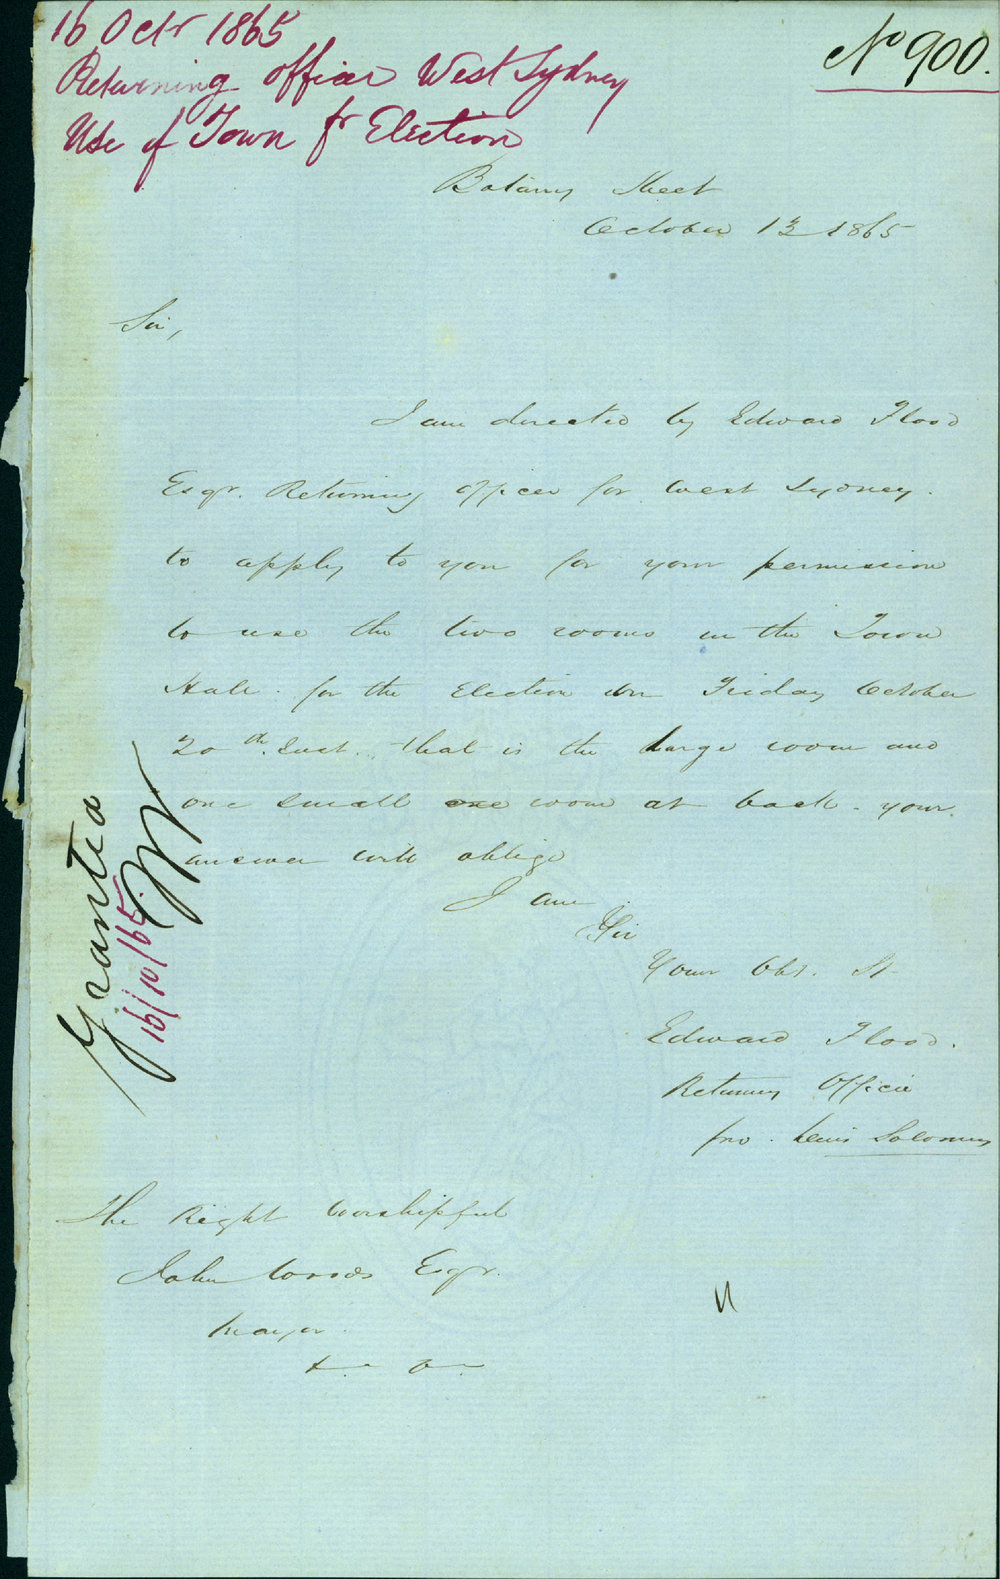 16 Octr 1865
Returning officer West Sydney
Use of Town fr Election
No 900.
Botany Street
October 13 1865
Sir,
I am directed by Edward Flood
Esqr. Returning officer for West Sydney.
to apply to you for your permission
to use the two rooms in the Town
Hall. for the Election on Friday October
20th. Inst. that is the large room and
one small one room at back. your.
answer will oblige
I am
Sir
Your Obt. St
Edward Flood.
Returning Officer
pro. Lewis Solomon
Granted
16/10/65.
The Right Worshipful
John Woods Esqr.
Mayor.